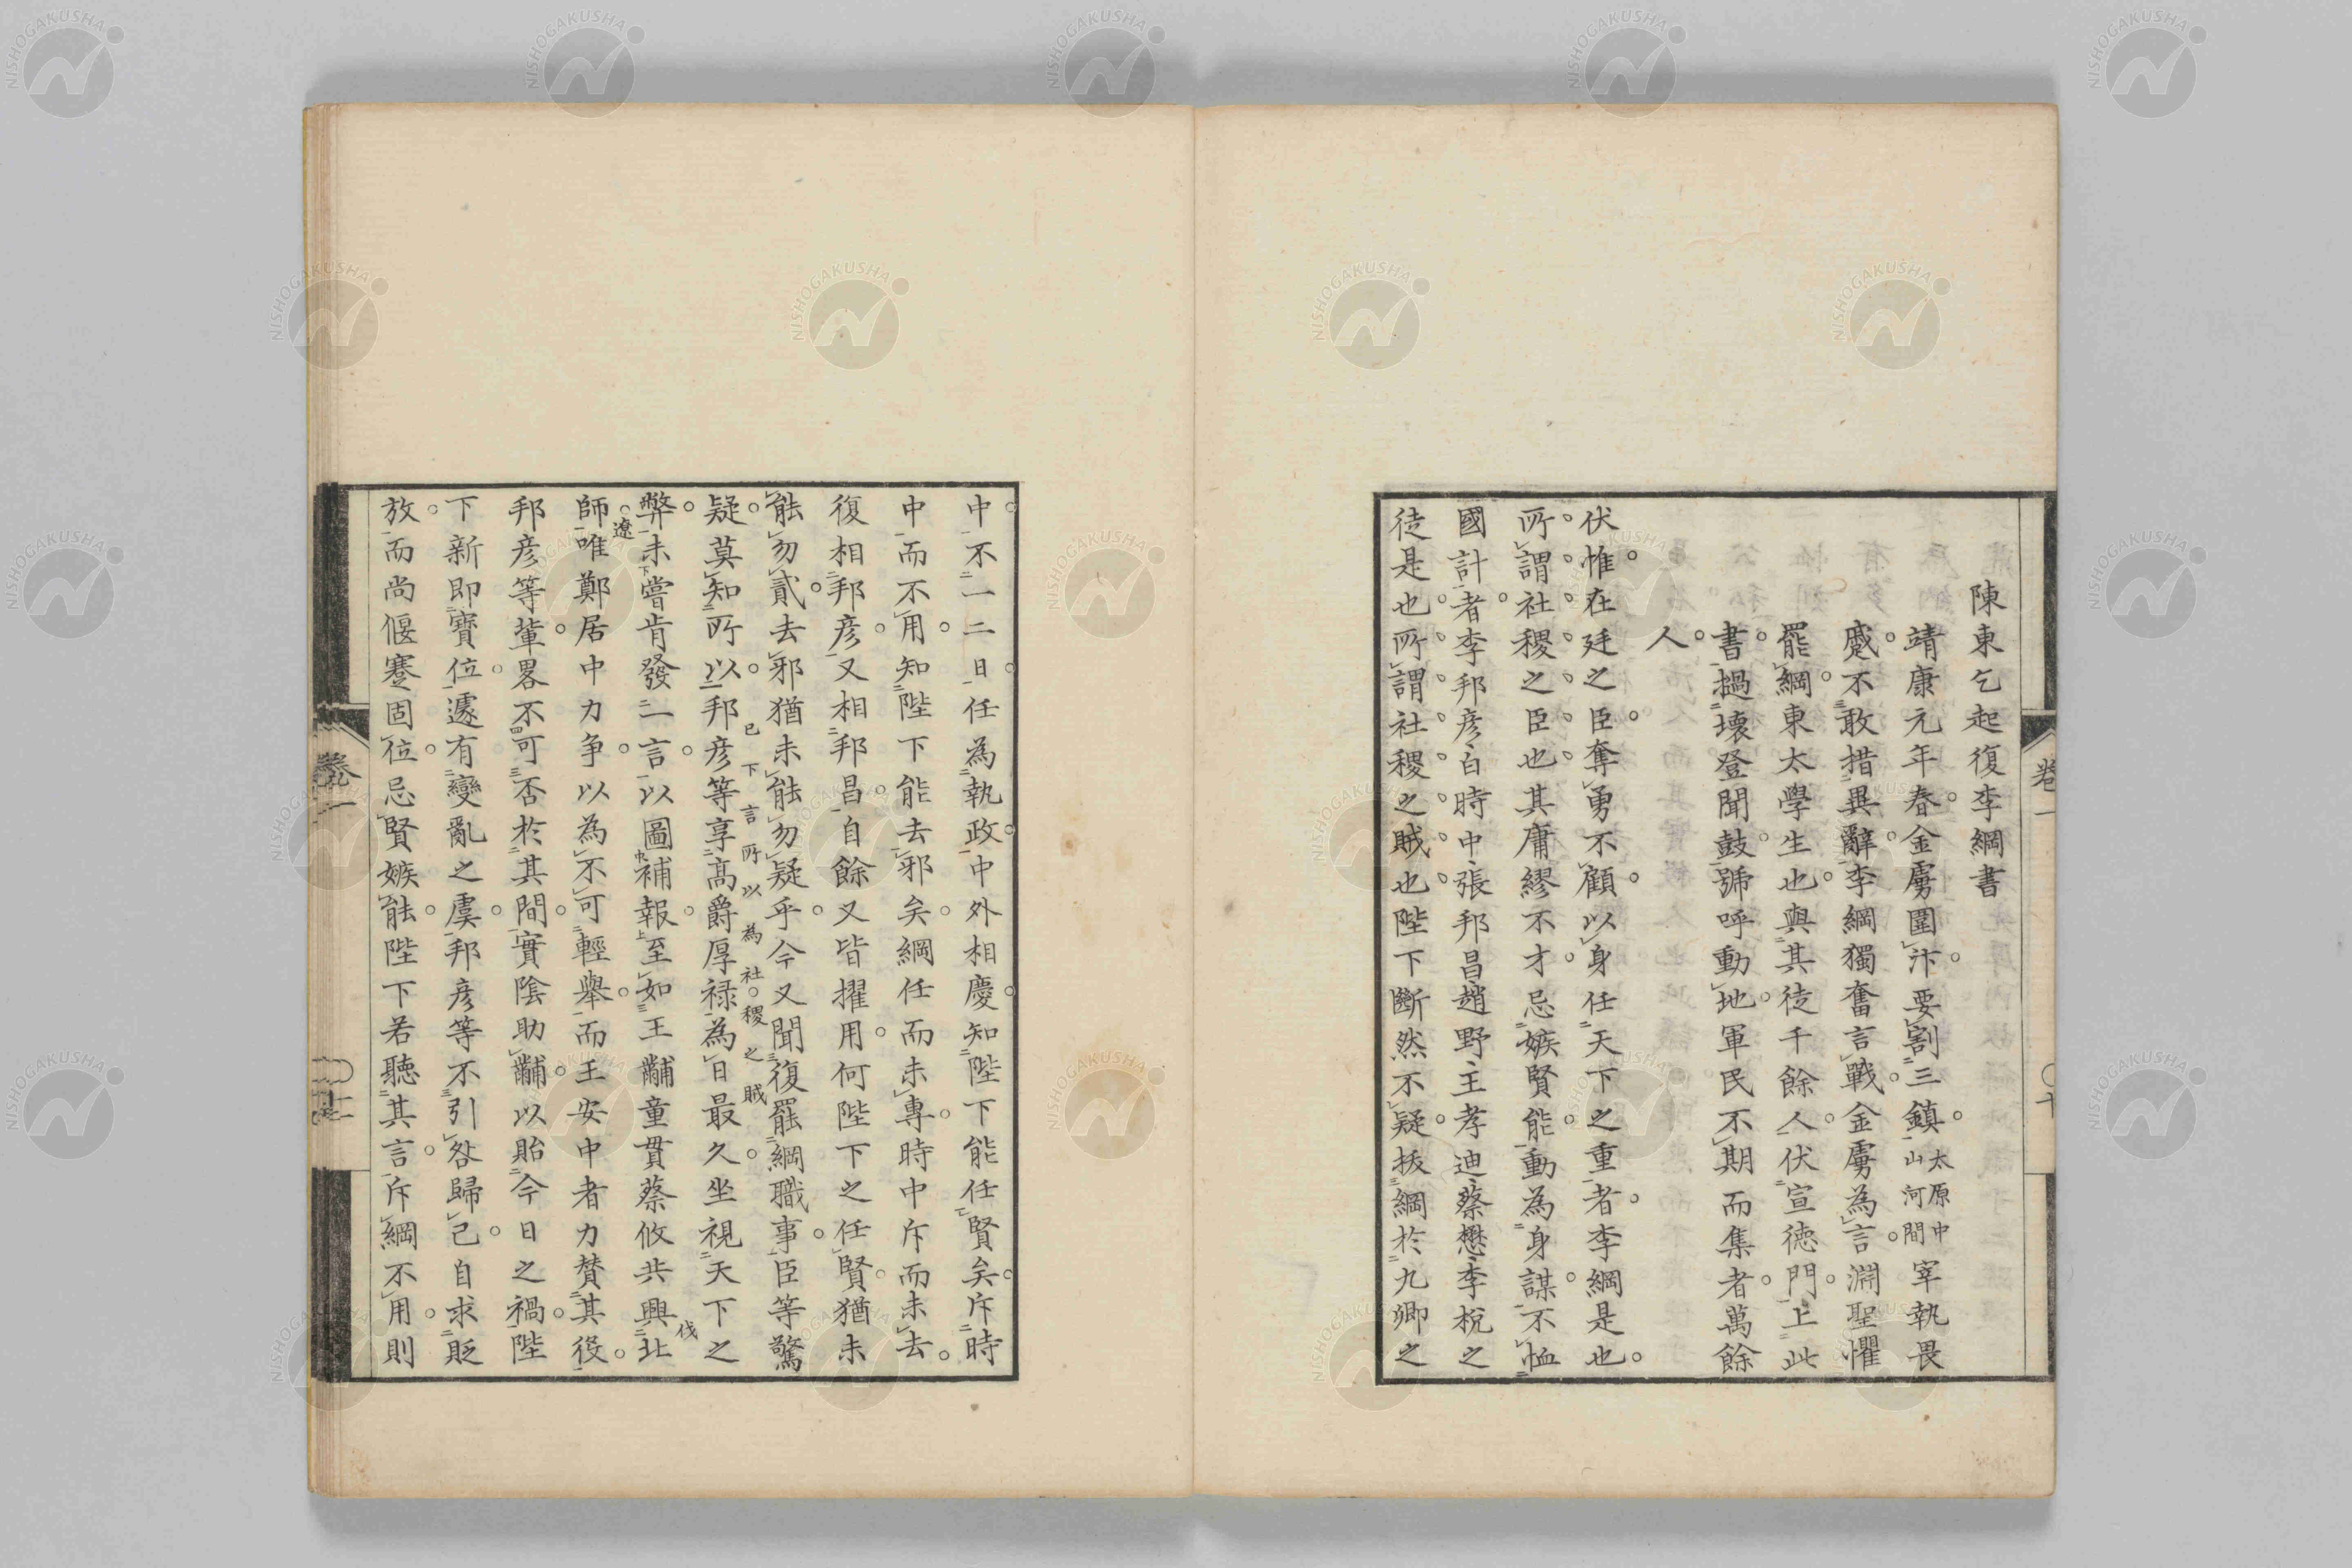 陳東乞起復李綱書
靖康元年春金虜圍汴要割三鎮太原中山河間宰執畏
蹙不敢措異辭李綱獨奮言戰金虜為言淵聖懼
罷綱東太學生也與其徒千餘人伏宣德門上此
書撾壞登聞鼓號呼動地軍民不期而集者萬餘
人
伏惟在廷之臣奪勇不顧以身任天下之重者李綱是也
所謂社稷之臣也其庸繆不才忌嫉賢能動為身謀不恤
國計者李邦彥白時中張邦昌趙野王孝迪蔡懋李梲之
徒是也所謂社稷之賊也陛下斷然不疑拔綱於九卿之
卷一
中不一二日任為執政中外相慶知陛下能任賢矣斥時
中而不用知陛下能去邪矣綱任而未專時中斥而未去
復相邦彥又相邦昌自餘又皆擢用何陛下之任賢猶未
能勿貳去邪猶未能勿疑乎今又聞復罷綱職事臣等驚
疑莫知所以邦彥等享高爵厚祿為日最久坐視天下之
已下言所以為社稷之賊
弊未嘗肯發一言以圖補報至如王黼童貫蔡攸共興北
伐
遼
師唯鄭居中力爭以為不可輕舉而王安中者力贊其役
邦彥等輩畧不可否於其間實陰助黼以貽今日之禍陛
下新即寶位遽有變亂之虞邦彥等不引咎歸己自求貶
放而尚偃蹇固位忌賢嫉能陛下若聽其言斥綱不用則
卷一
NISHOGAKUSHA